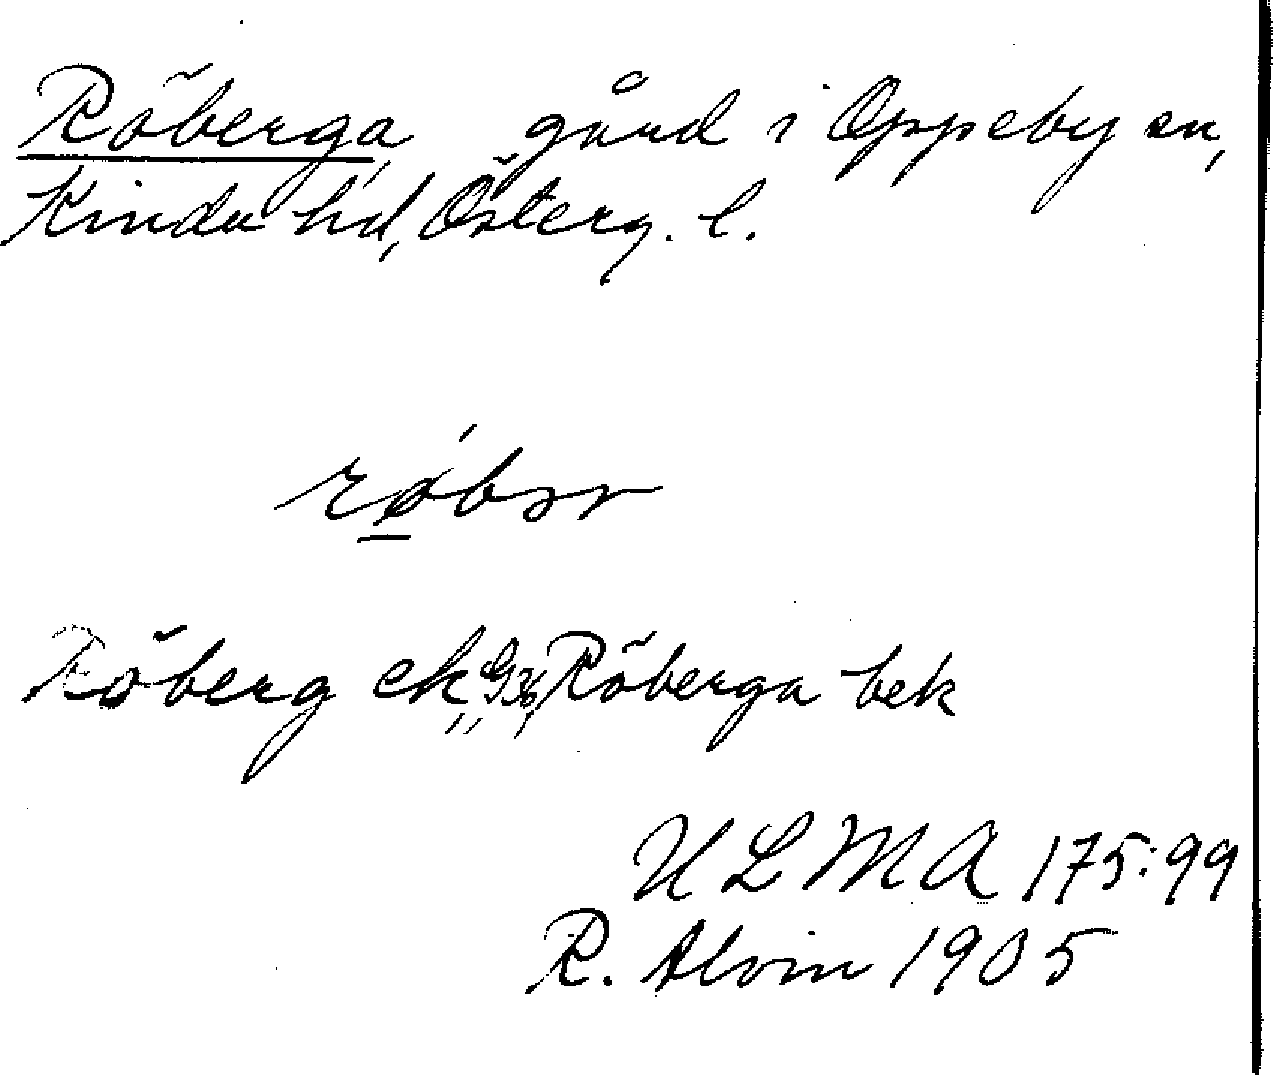 Röberga, gård i Oppeby sn,
Kinda hd, Österg. l.
Röberg ek, G36, Röberga bek
ULMA 175:99
R. Alvin 1905